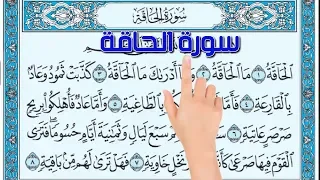 سُورَةُ الحَاقَّةِ
سورة الحاقة
ٱلْحَآقَّةُ ١ مَا ٱلْحَآقَّةُ ٢ وَمَآ أَدْرَىٰكَ مَا ٱلْحَآقَّةُ ٣ كَذَّبَتْ ثَمُودُ وَعَادٌۢ
بِٱلْقَارِعَةِ ٤ فَأَمَّا بِٱلطَّاغِيَةِ ٥ وَأَمَّا عَادٌ فَأُهْلِكُوا۟ بِرِيحٍ
صَرْصَرٍ عَاتِيَةٍ ٦ سَبْعَ لَيَالٍ وَثَمَٰنِيَةَ أَيَّامٍ حُسُومًا فَتَرَى
ٱلْقَوْمَ فِيهَا صَرْعَىٰ نَخْلٍ خَاوِيَةٍ ٧ فَهَلْ تَرَىٰ لَهُم مِّنۢ بَاقِيَةٍ ٨